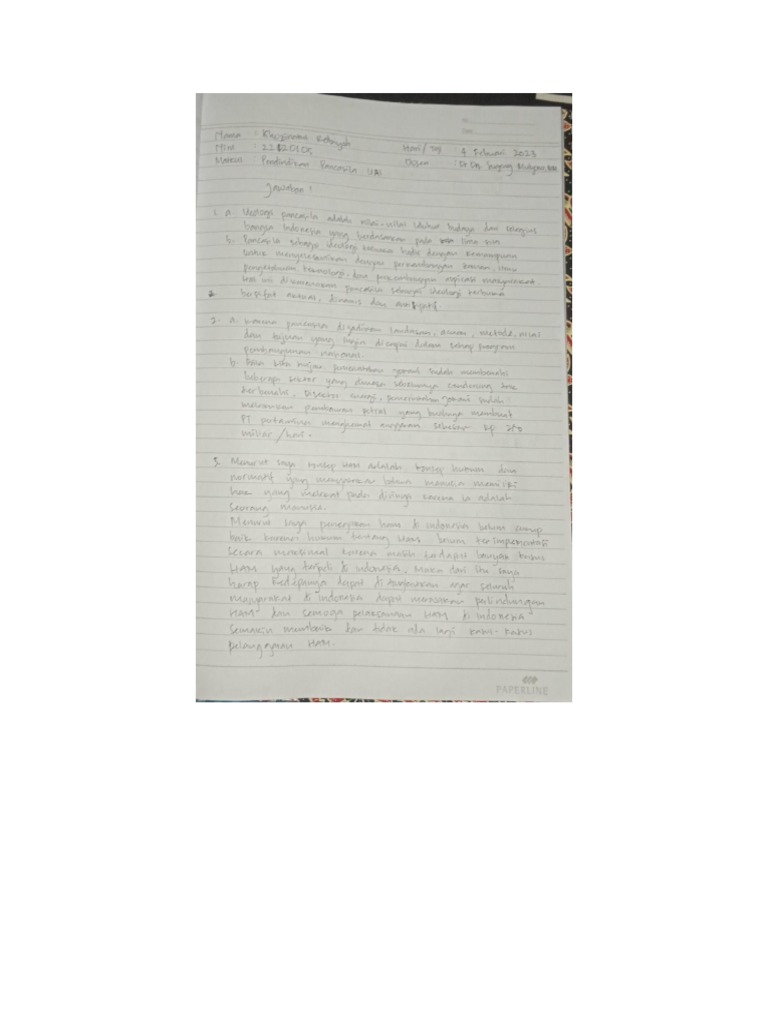 No
Date
Nama :
NIM : 22020105 Hari/Tgl : 4 Februari 2023
Matkul : Pendidikan Pancasila Dosen : Dr
Jawaban !
1. a. Ideologi pancasila adalah nilai-nilai luhur budaya dan religius
bangsa Indonesia yang berdasarkan pada lima sila
b. Pancasila sebagai ideologi terbuka yaitu dengan kemampuan
untuk menyesuaikan dengan perkembangan zaman, ilmu
pengetahuan, teknologi, dan perkembangan aspirasi masyarakat.
Hal ini dikarenakan pancasila sebagai ideologi terbuka
bersifat aktual, dinamis dan
2. a. Karena pancasila dijadikan landasan, acuan, metode, nilai
dan tujuan yang ingin dicapai dalam setiap program
pembangunan nasional.
b. kita pemerintahan jokowi sudah membenahi
beberapa sektor yang dimana sebelumnya cenderung
terbenahi, disektor energi, pemerintahan jokowi sudah
petral yang membuat
PT pertamina menghemat anggaran sebesar Rp 250
miliar/hari.
3. Menurut saya konsep HAM adalah konsep hukum dan
normatif yang menyatakan bahwa manusia memiliki
hak yang melekat pada dirinya karena ia adalah
seorang manusia.
Menurut saya penerapan HAM di indonesia belum cukup
baik karena hukum tentang HAM belum terimplementasi
secara maksimal karena masih terdapat banyak kasus
HAM yang terjadi di indonesia. Maka dari itu saya
harap kedepannya dapat di agar seluruh
masyarakat di indonesia dapat merasakan perlindungan
HAM dan semoga pelaksanaan HAM di indonesia
semakin membaik dan tidak ada lagi kasus-kasus
pelanggaran HAM.
PAPERLINE